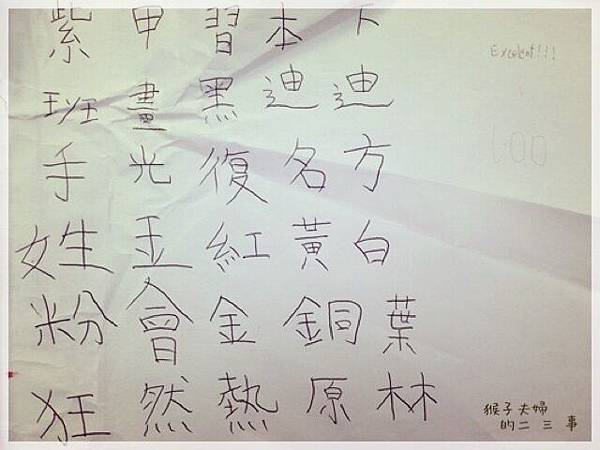 紫甲習本下
班畫黑迪迪
手光復名方
姓玉紅黃白
粉會金銅葉
狂然熱原林
Excelent!!!
100
猴子夫婦
的二三事